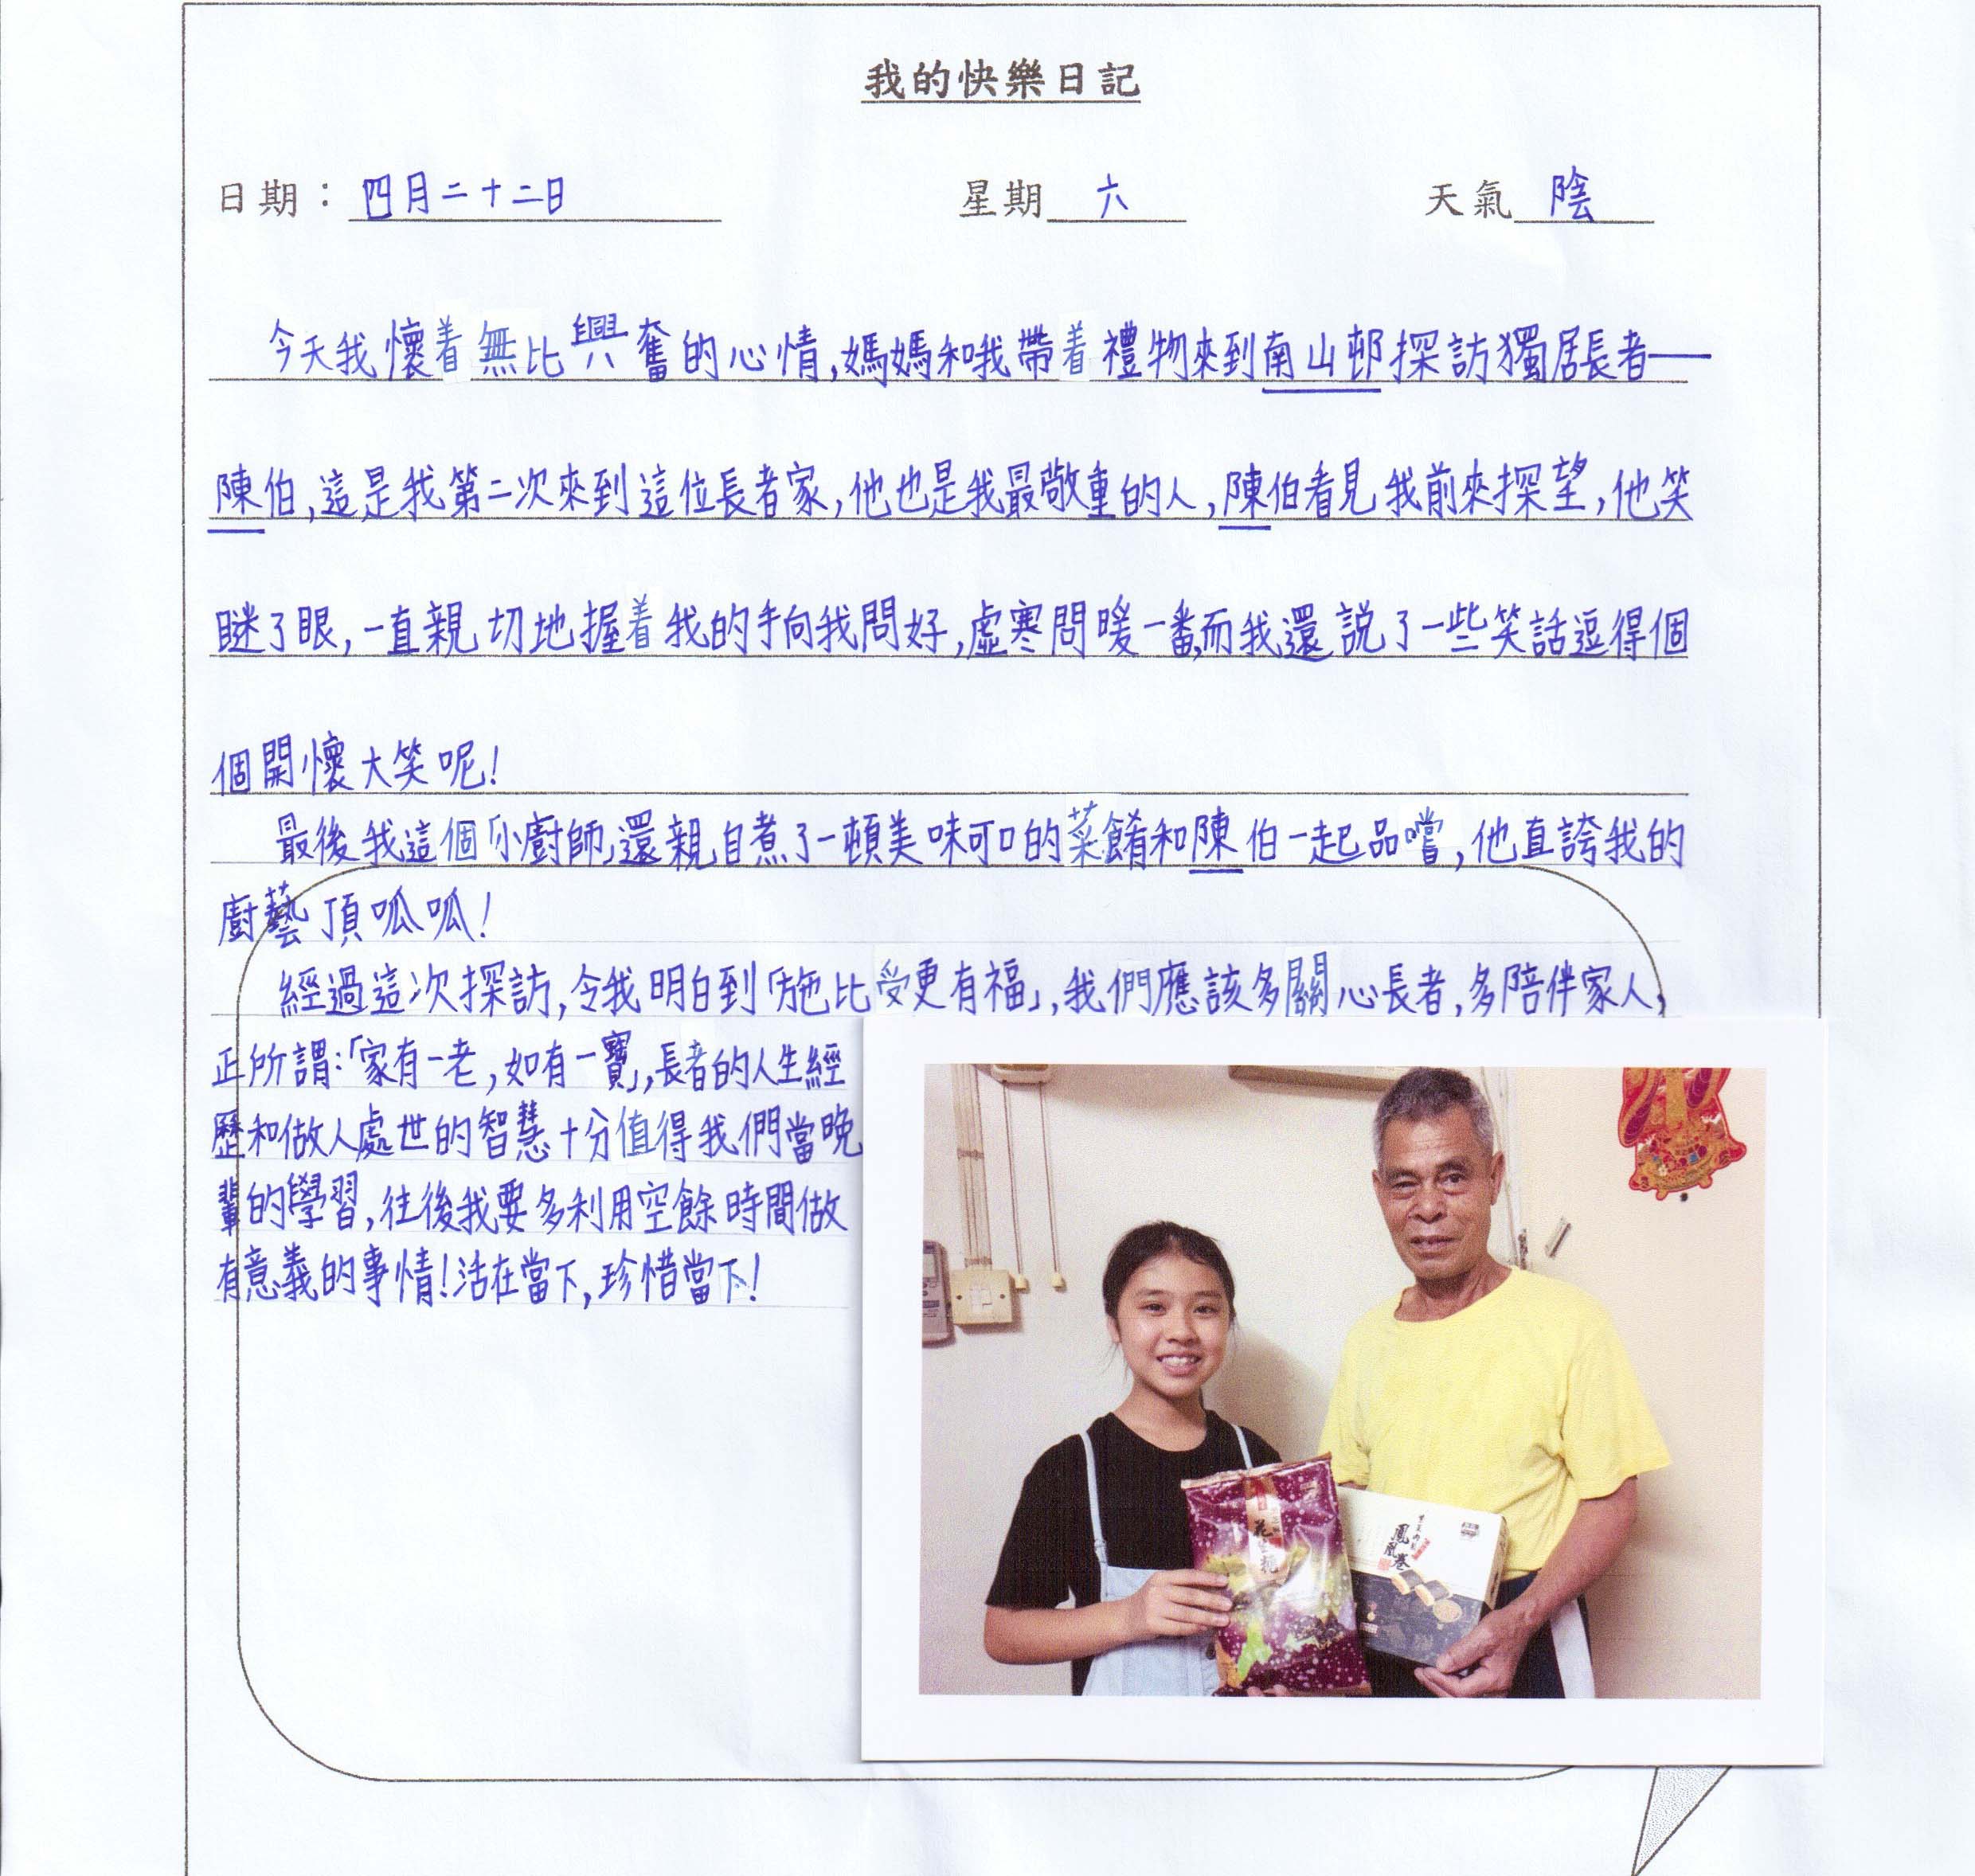 我的快樂日記
日期：四月二十二日 星期 六 天氣 陰
今天我懷着無比興奮的心情,媽媽和我帶着禮物來到南山邨探訪獨居長者——
陳伯,這是我第二次來到這位長者家,他也是我最敬重的人,陳伯看見我前來探望,他笑
瞇了眼,一直親切地握着我的手向我問好,虛寒問暖一番,而我還說了一些笑話逗得個
個開懷大笑呢!
最後我這個「小廚師」還親自煮了一頓美味可口的菜餚和陳伯一起品嚐,他直誇我的
廚藝頂呱呱!
經過這次探訪,令我明白到「施比受更有福」,我們應該多關心長者,多陪伴家人,
正所謂:「家有一老,如有一寶」,長者的人生經
歷和做人處世的智慧十分值得我們當晚
輩的學習,往後我要多利用空餘時間做
有意義的事情!活在當下,珍惜當下!
花生糖
鳳凰卷